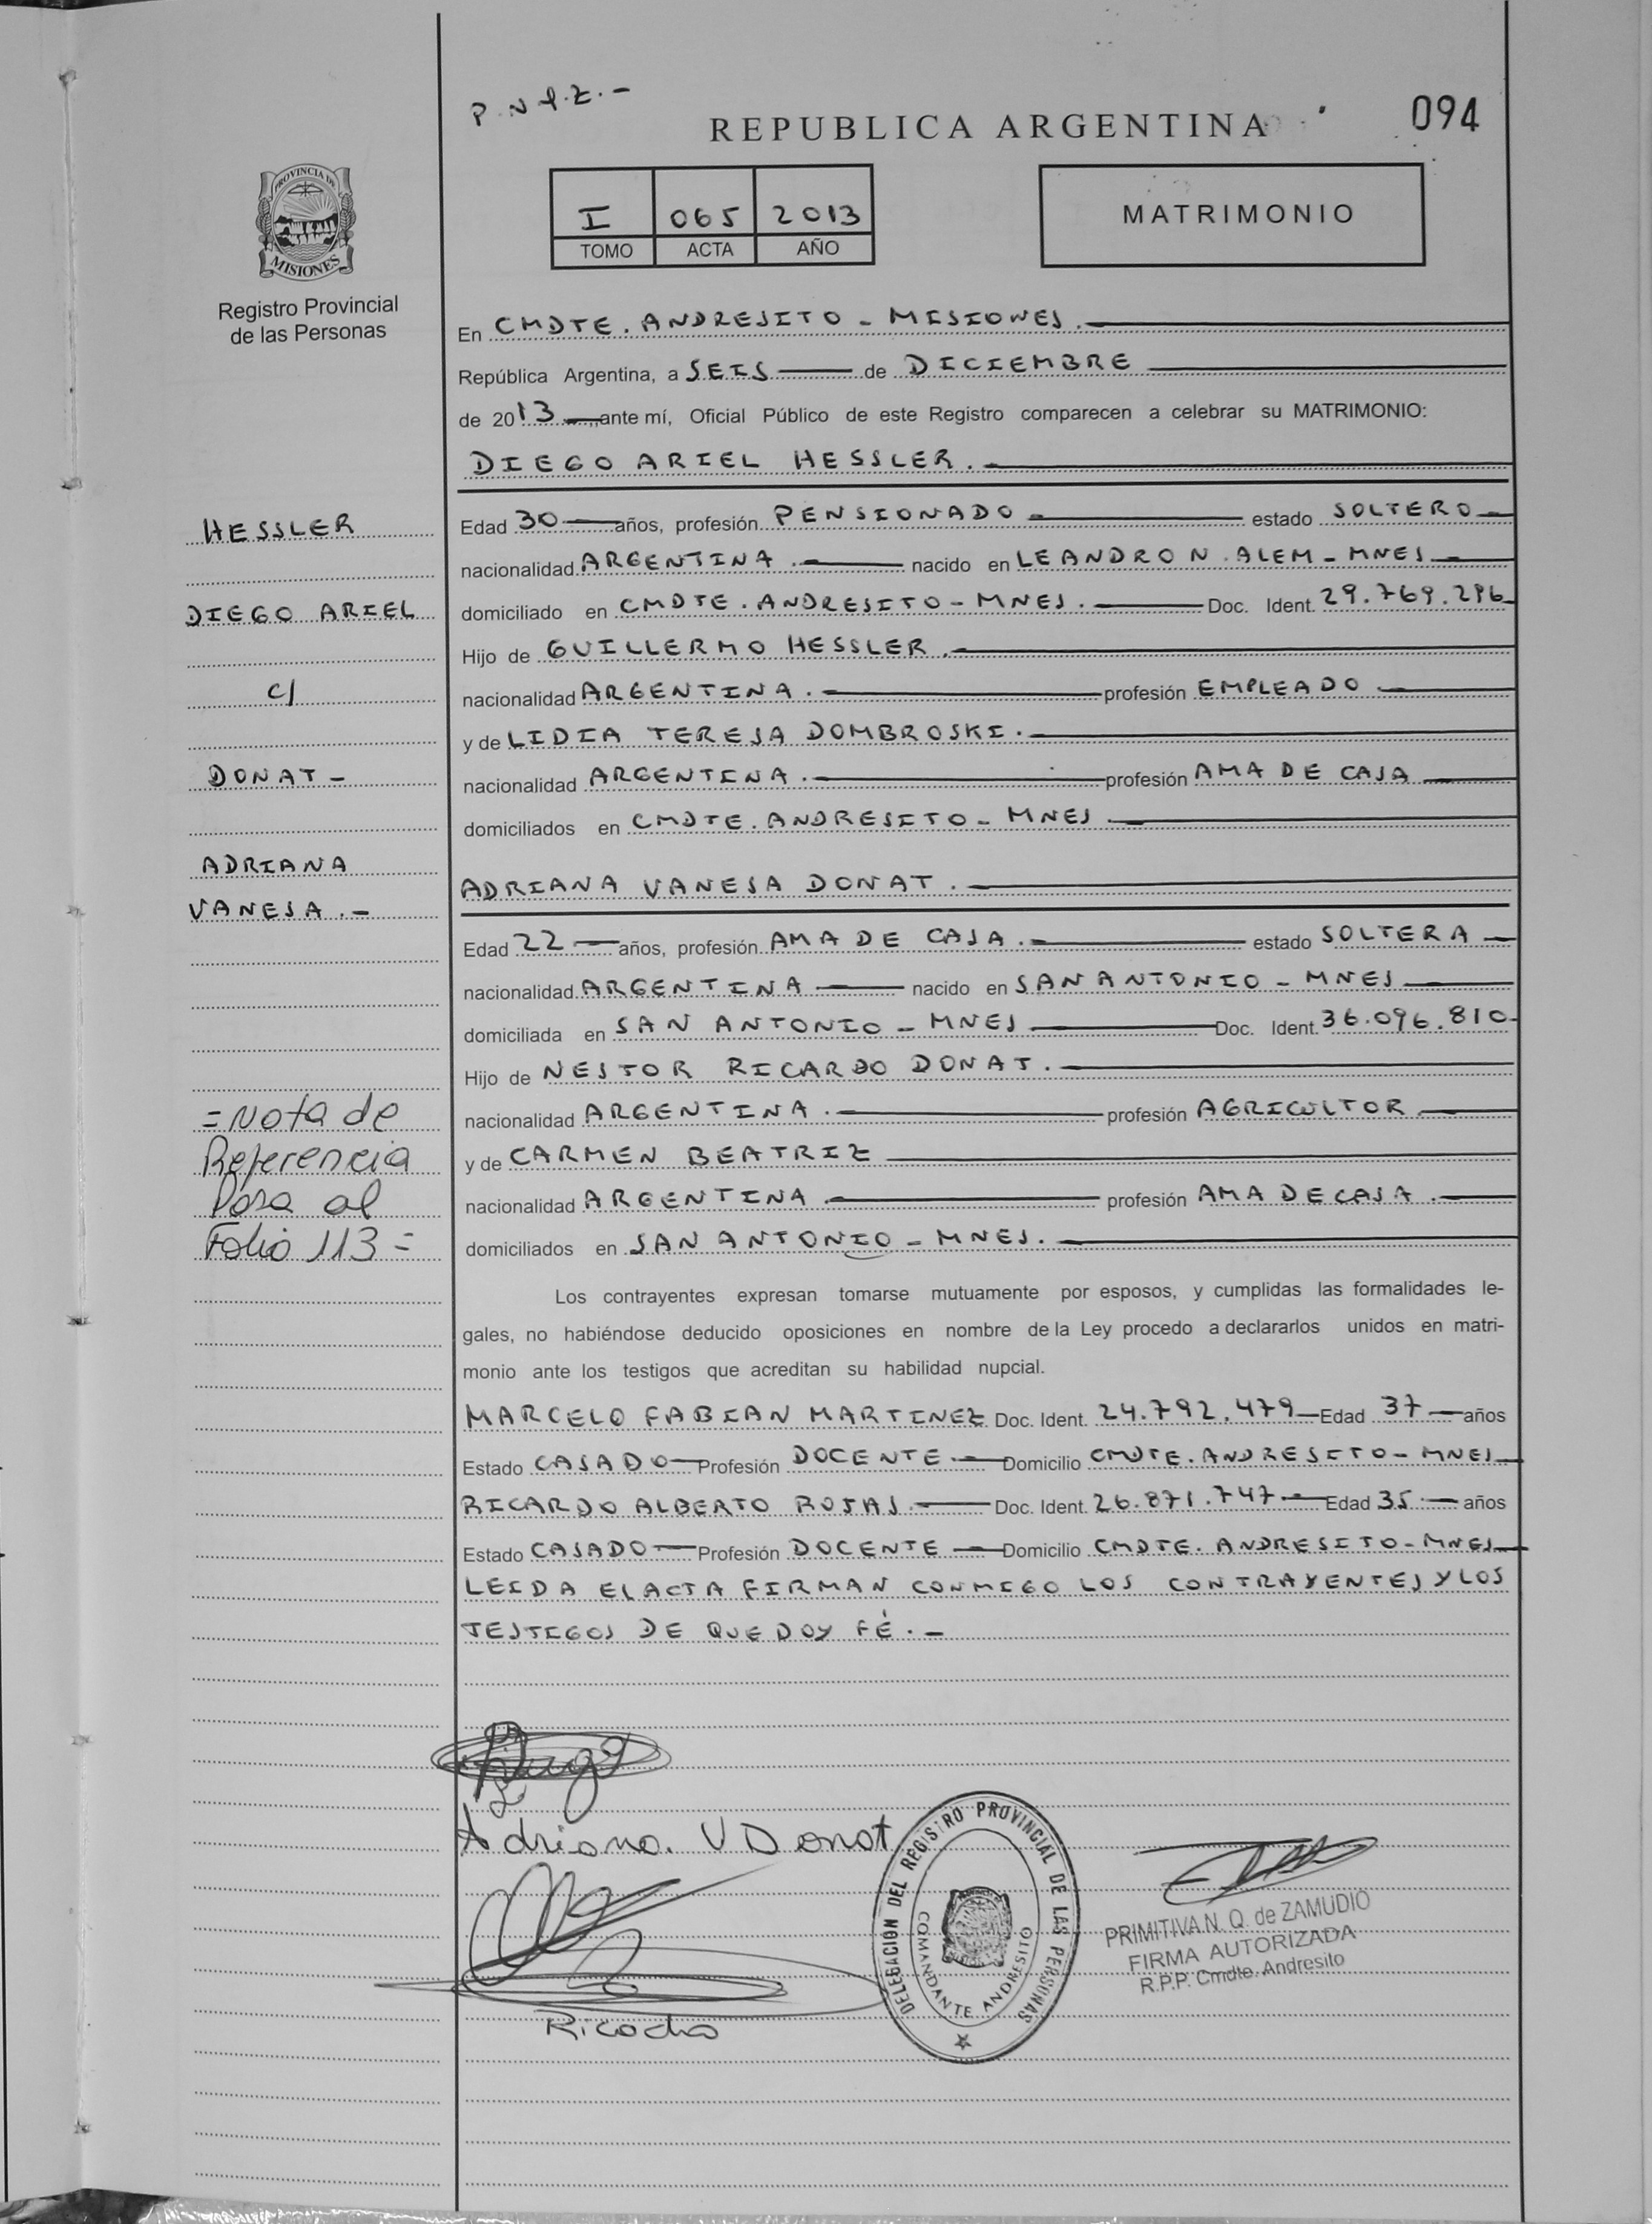 P.N.Q.Z.-
REPUBLICA ARGENTINA
094
PROVINCIA DE
MISIONES
Registro Provincial
de las Personas
I 065 2013
TOMO ACTA AÑO
MATRIMONIO
En CMDTE. ANDRESITO - MISIONES.
República Argentina, a SEIS de DICIEMBRE
de 2013 ante mí, Oficial Público de este Registro comparecen a celebrar su MATRIMONIO:
DIEGO ARIEL HESSLER.
HESSLER
DIEGO ARIEL
c/
DONAT -
ADRIANA
VANESA.-
= Nota de
Referencia
Pasa al
Folio 113 =
Edad 30 años, profesión PENSIONADO estado SOLTERO
nacionalidad ARGENTINA. nacido en LEANDRO N. ALEM - MNES
domiciliado en CMDTE. ANDRESITO - MNES. Doc. Ident. 29.769.296
Hijo de GUILLERMO HESSLER.
nacionalidad ARGENTINA. profesión EMPLEADO
y de LIDIA TERESA DOMBROSKI.
nacionalidad ARGENTINA. profesión AMA DE CASA
domiciliados en CMDTE. ANDRESITO - MNES
ADRIANA VANESA DONAT.
Edad 22 años, profesión AMA DE CASA. estado SOLTERA
nacionalidad ARGENTINA nacido en SAN ANTONIO - MNES
domiciliada en SAN ANTONIO - MNES Doc. Ident. 36.096.810
Hijo de NESTOR RICARDO DONAT.
nacionalidad ARGENTINA. profesión AGRICULTOR
y de CARMEN BEATRIZ
nacionalidad ARGENTINA. profesión AMA DE CASA.
domiciliados en SAN ANTONIO - MNES.
Los contrayentes expresan tomarse mutuamente por esposos, y cumplidas las formalidades le-
gales, no habiéndose deducido oposiciones en nombre de la Ley procedo a declararlos unidos en matri-
monio ante los testigos que acreditan su habilidad nupcial.
MARCELO FABIAN MARTINEZ Doc. Ident. 24.792.479 Edad 37 años
Estado CASADO Profesión DOCENTE Domicilio CMDTE. ANDRESITO - MNES
RICARDO ALBERTO ROJAS. Doc. Ident. 26.871.747 Edad 35 años
Estado CASADO Profesión DOCENTE Domicilio CMDTE. ANDRESITO - MNES
LEIDA EL ACTA FIRMAN CONMIGO LOS CONTRAYENTES Y LOS
TESTIGOS DE QUE DOY FÉ.-
Adriana. V Donat
DELEGACIÓN DEL REGISTRO PROVINCIAL DE LAS PERSONAS
COMANDANTE ANDRESITO
PRIMITIVA N. Q. de ZAMUDIO
FIRMA AUTORIZADA
R.P.P. Cmdte. Andresito